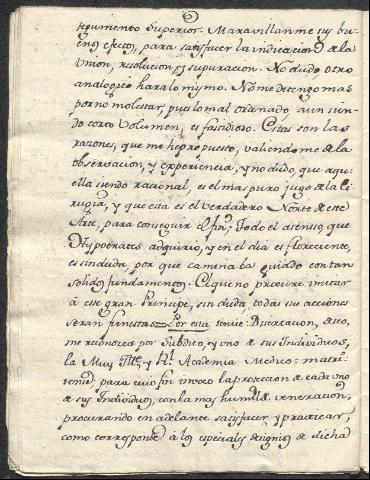 tegumento Superior. Maravillanme sus bu-
enos efectos, para satisfacer la indicacion de la
Union, resolucion, y supuracion. No dudo otro
analogico hara lo mismo. No me detengo mas
por no molestar, pues lo mal ordenado, aun sien-
do corto Volumen, es fastidioso. Estas son las
razones, que me hè propuesto, valiendome de la
observacion, y experiencia, y no dudo, que aqu-
ella siendo racional, es el mas puro jugo de la Ci-
rugia, y que esta es el verdadero Norte de este
Arte, para conseguir el fin; Todo el ascenso, que
Hypocrates adquirio, y en el dia es floreciente,
es sin duda, por que caminaba guiado con tan
solidos fundamentos. El que no procure imitar
à este gran Principe, sin duda todas sus acciones
seran funestas = Por esta tenue Disertacion, deseo,
me reconozca por Subdito, y uno de sus Individuos,
la Muy Ille. y Rl. Academia Medico-matri-
tense, para cuio fin invoco la proteccion de cada uno
de sus Individuos, con la mas humilde veneracion,
procurando en adelante satisfacer, y practicar,
como corresponde à los especiales designios de dicha